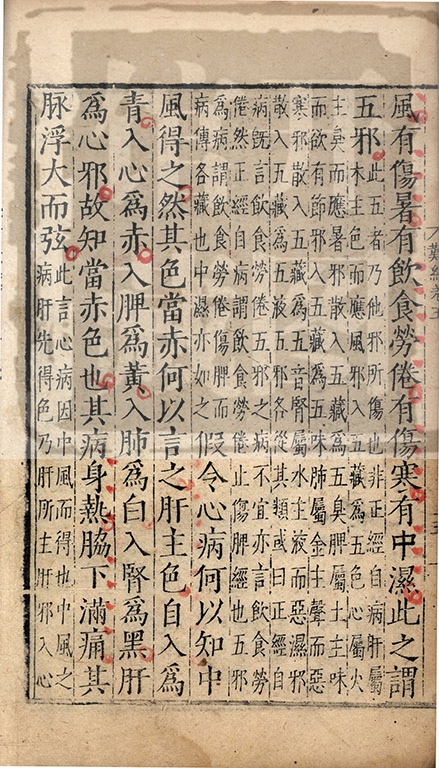 風有傷暑有飲食勞倦有傷寒有中濕此之謂
五邪
此五者乃他邪所傷也非正經自病肝屬
木主色而應風邪入五藏為五色心屬火
主臭而應暑邪散入五藏為五臭脾屬土主味
而欲有節邪入五藏為五味肺屬金主聲而惡
寒邪散入五藏為五音腎屬水主液而惡濕邪
散入五藏為五液五邪各從其類或曰正經自
病既言飲食勞倦五邪之病不宜亦言飲食勞
倦然正經自病謂飲食勞倦止傷脾經也五邪
為病謂飲食勞倦傷脾而
病傳各藏也中濕亦如之
假令心病何以知中
風得之然其色當赤何以言之肝主色自入為
青入心為赤入脾為黃入肺為白入腎為黑肝
為心邪故知當赤色也其病身熱脇下滿痛其
脉浮大而弦
此言心病因中風而得也中風之
病肝先得色乃肝所主肝邪入心